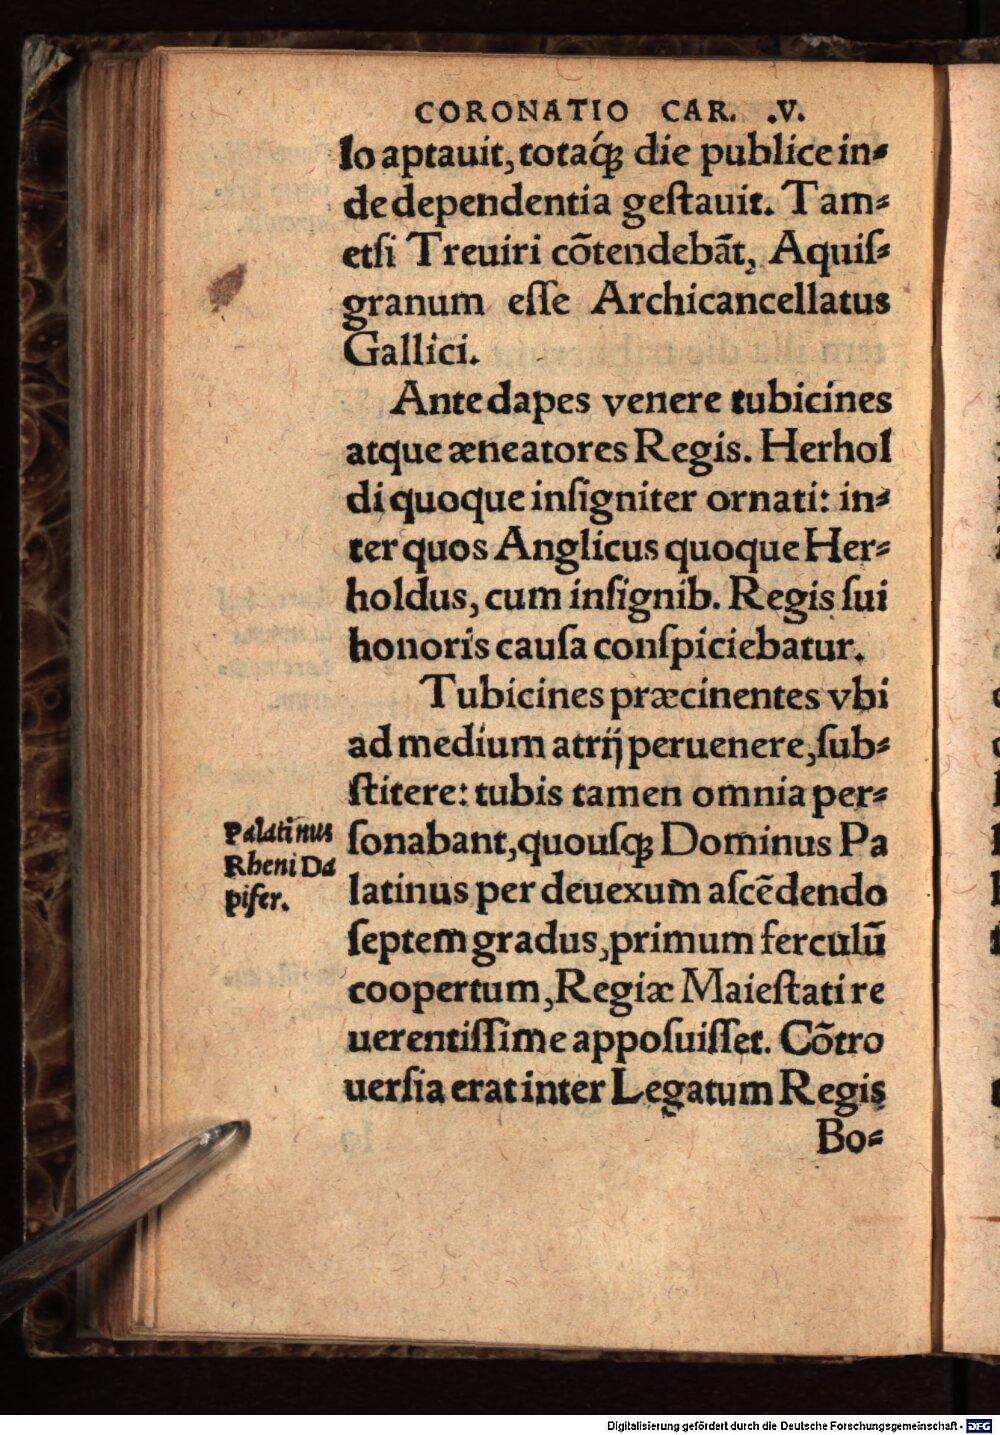 CORONATIO CAR. .V.
lo aptauit, totaq́ꝫ die publice in⸗
de dependentia geſtauit. Tam⸗
etſi Treuiri cõtendebãt, Aquiſ⸗
granum eſſe Archicancellatus
Gallici.
Ante dapes venere tubicines
atque æneatores Regis. Herhol
di quoque inſigniter ornati: in⸗
ter quos Anglicus quoque Her⸗
holdus, cum inſignib. Regis ſui
honoris cauſa conſpiciebatur.
Tubicines præcinentes vbi
ad medium atrij peruenere, ſub⸗
ſtitere: tubis tamen omnia per⸗
ſonabant, quouſqꝫ Dominus Pa
latinus per deuexum aſcẽdendo
ſeptem gradus, primum ferculũ
coopertum, Regiæ Maieſtati re
uerentiſſime appoſuiſſet. Cõtro
uerſia erat inter Legatum Regis
Bo⸗
Palatinus
Rheni Da
pifer.
Digitalisierung gefördert durch die Deutsche Forschungsgemeinschaft - DFG